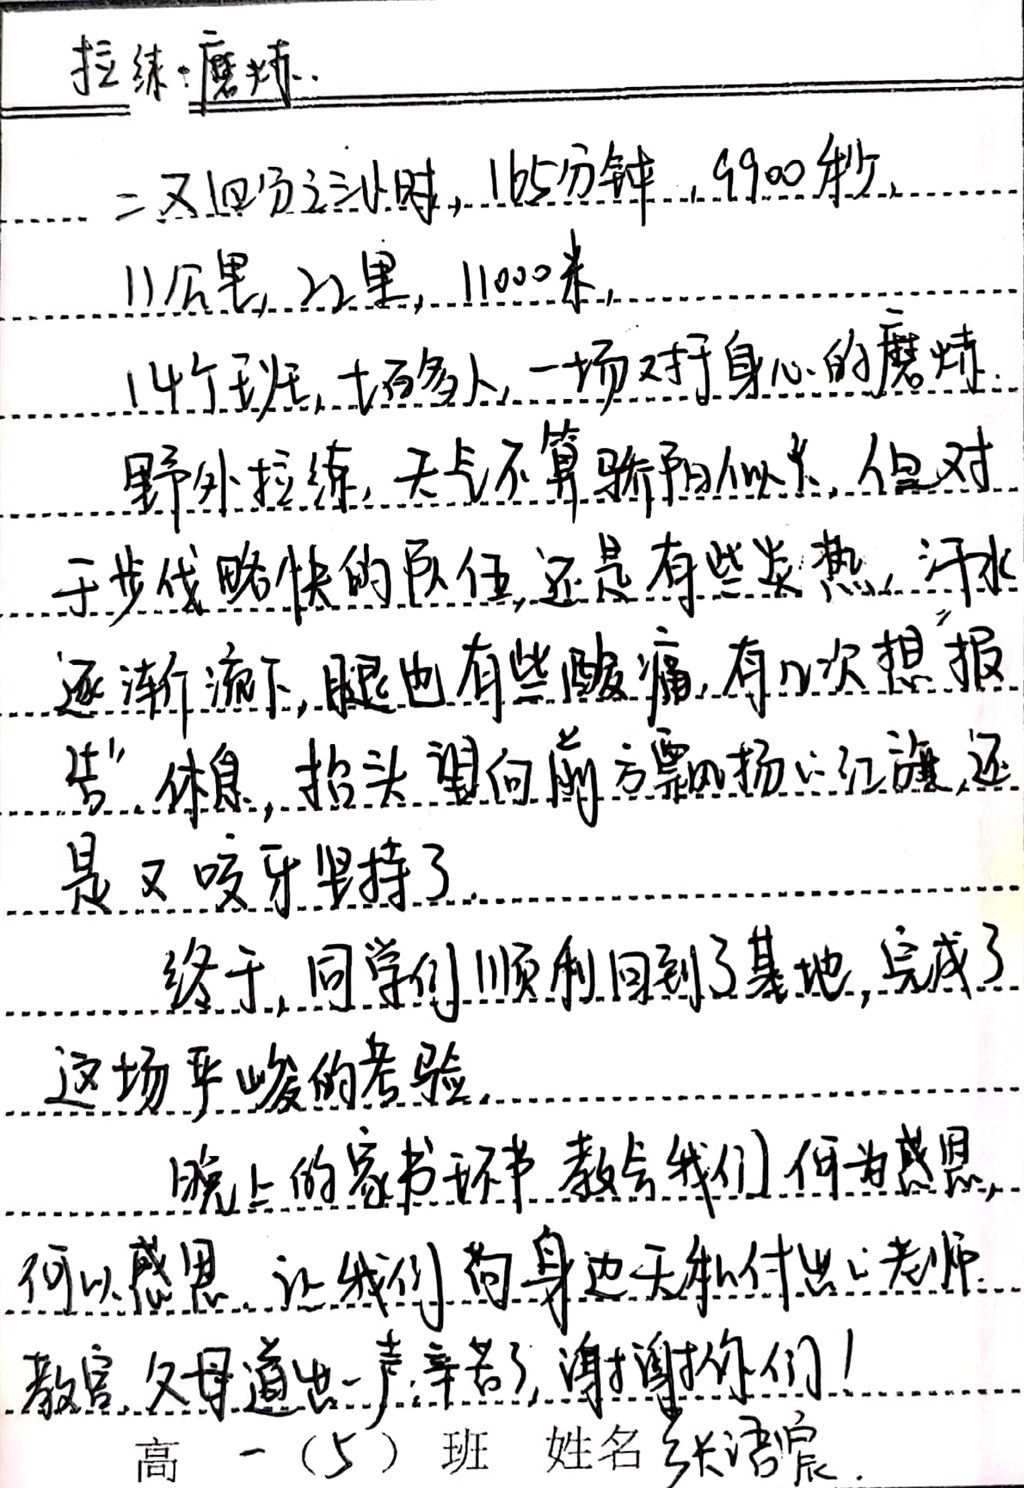 拉练·磨炼.
二又四分之三小时，165分钟，9900秒，
11公里，22里，11000米，
14个班，七百多人，一场对于身心的磨炼.
野外拉练，天气不算骄阳似火，但对
于步伐略快的队伍，还是有些炎热，汗水
逐渐流下，腿也有些酸痛，有几次想“报
告”休息，抬头望向前方飘扬的红旗，还
是又咬牙坚持了.
终于，同学们顺利回到了基地，完成了
这场严峻的考验.
晚上的家书环节教会我们何为感恩，
何以感恩，让我们向身边无私付出的老师.
教官，父母道出一声辛苦了，谢谢你们！
高一（5）班 姓名 张语宸.